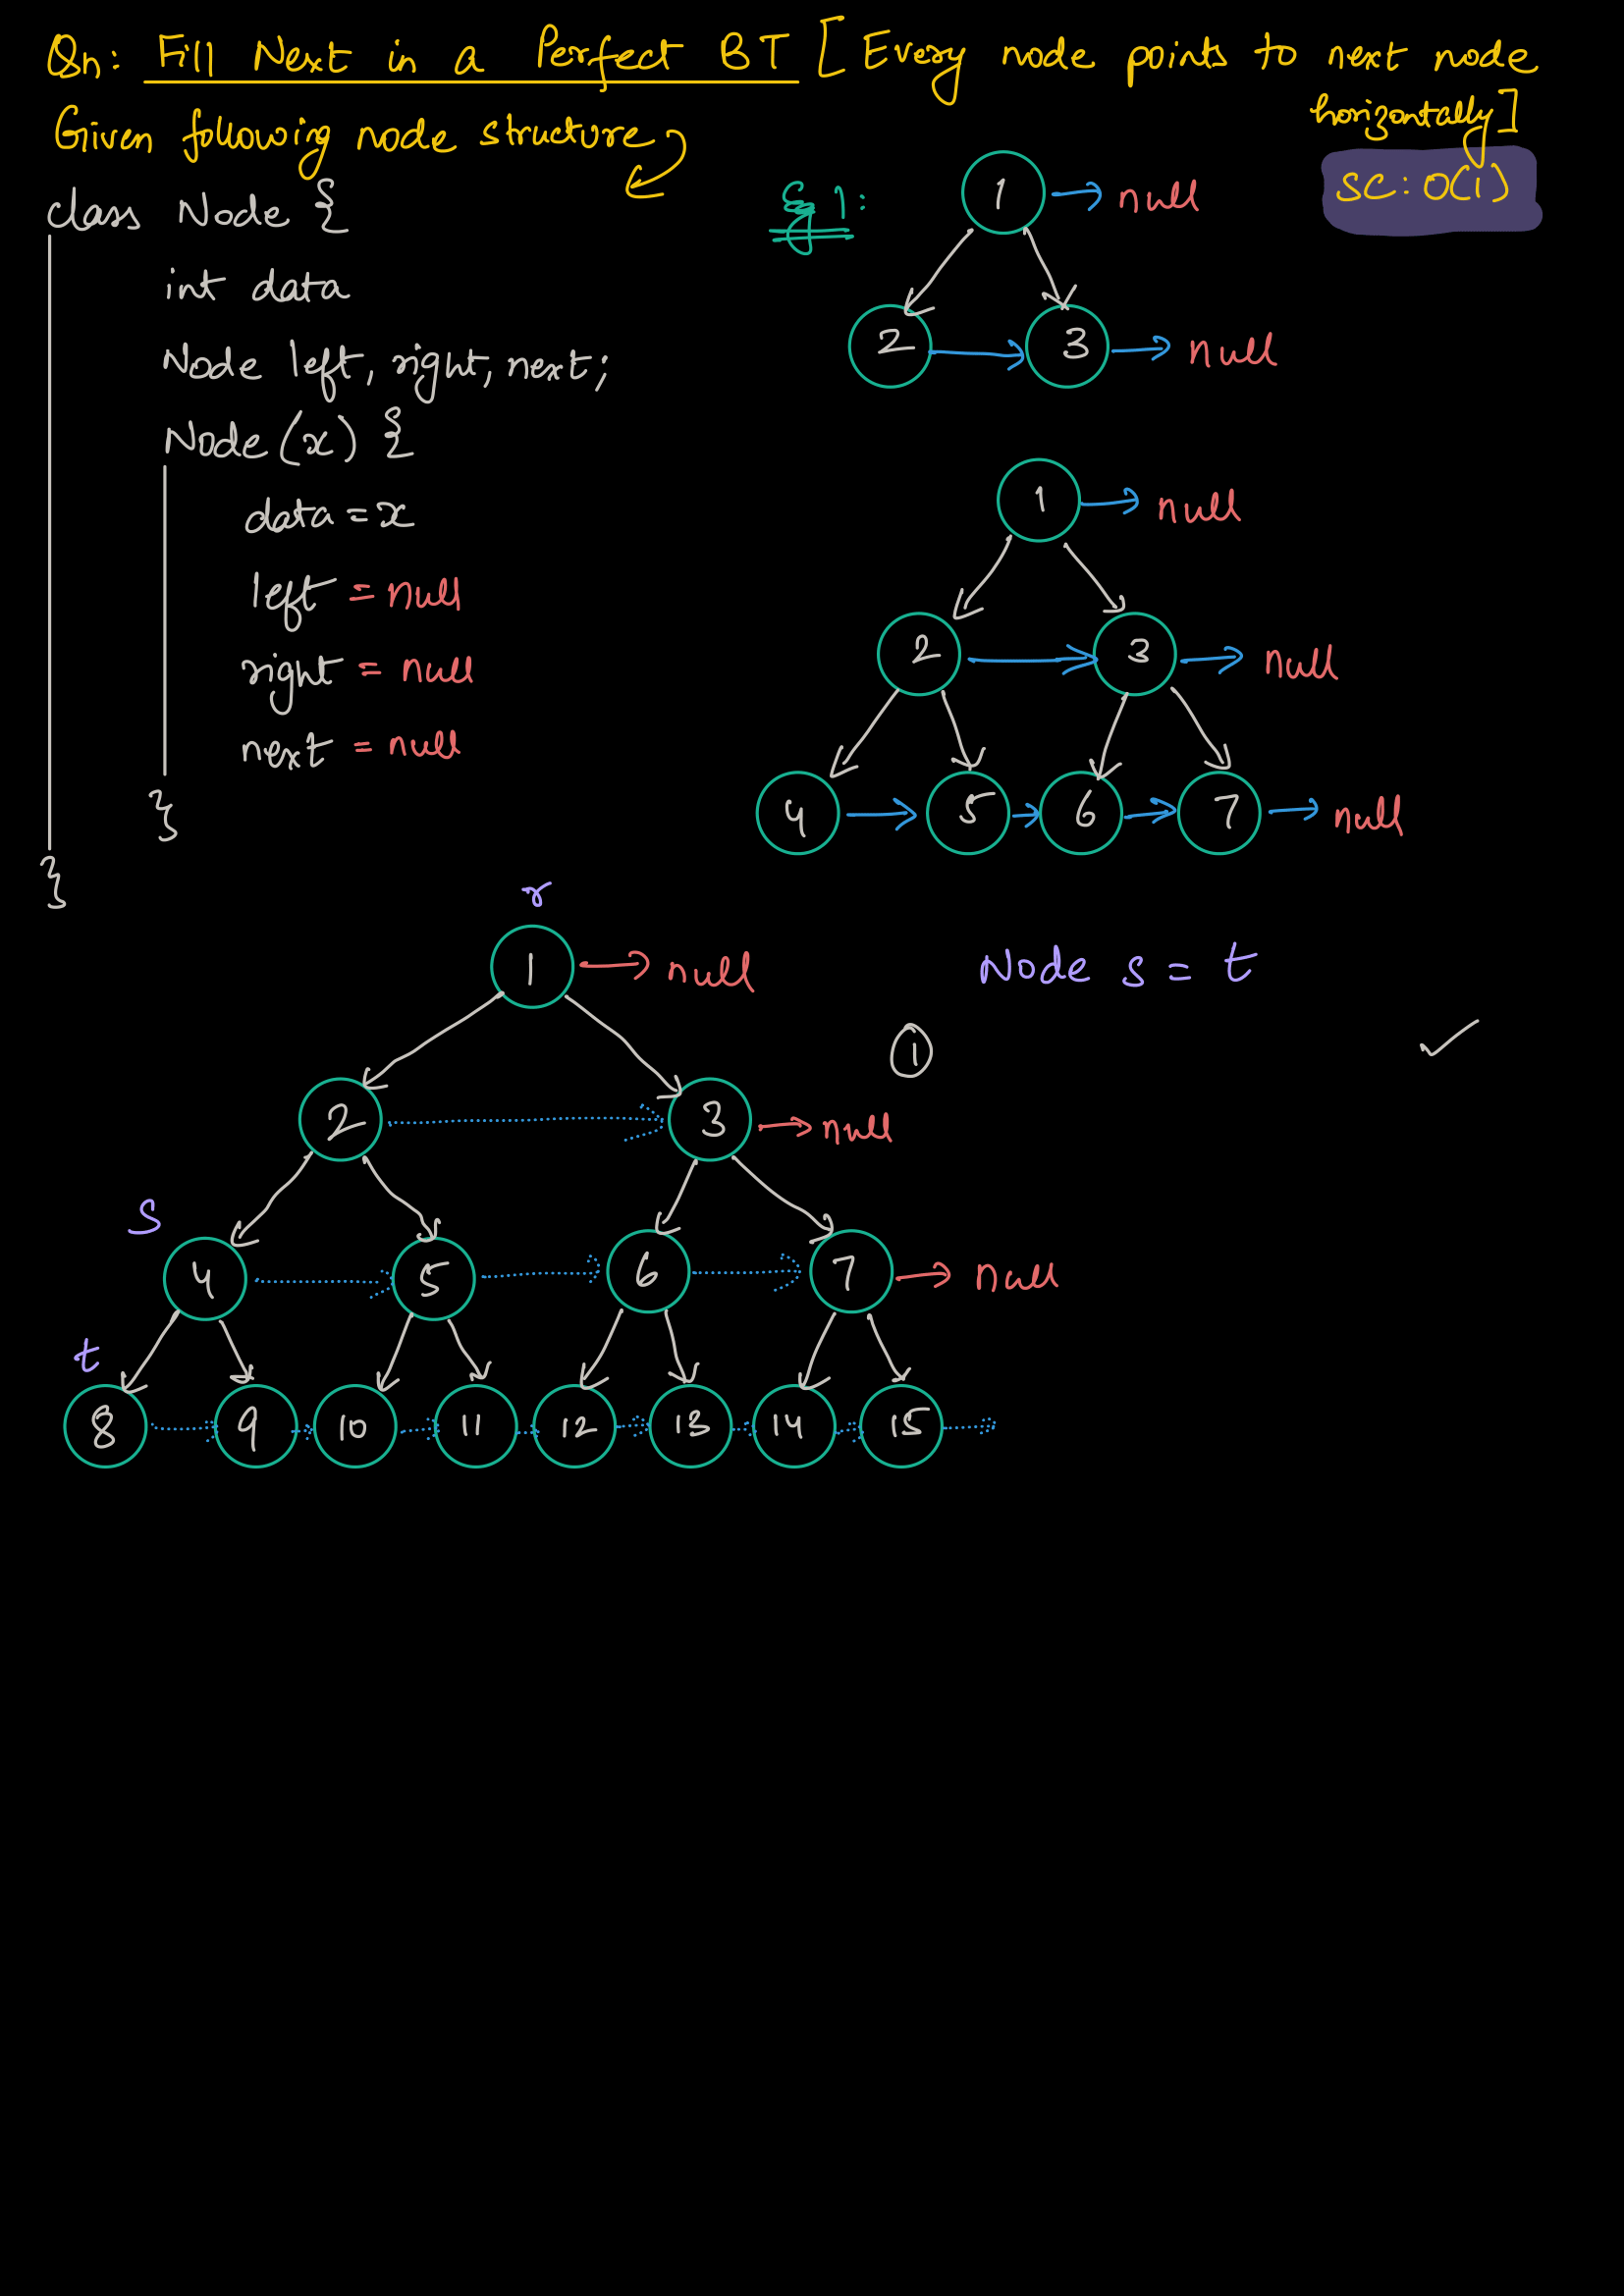 Qn: Fill Next in a Perfect BT [Every node points to next node
horizontally]
Given following node structure
SC: O(1)
class Node {
int data
Node left, right, next;
Node(x) {
data = x
left = null
right = null
next = null
}
}
Eg 1:
1 null
2 3 null
1 null
2 3 null
4 5 6 7 null
r
1 null
Node s = t
1
2 3 null
s
4 5 6 7 null
t
8 9 10 11 12 13 14 15